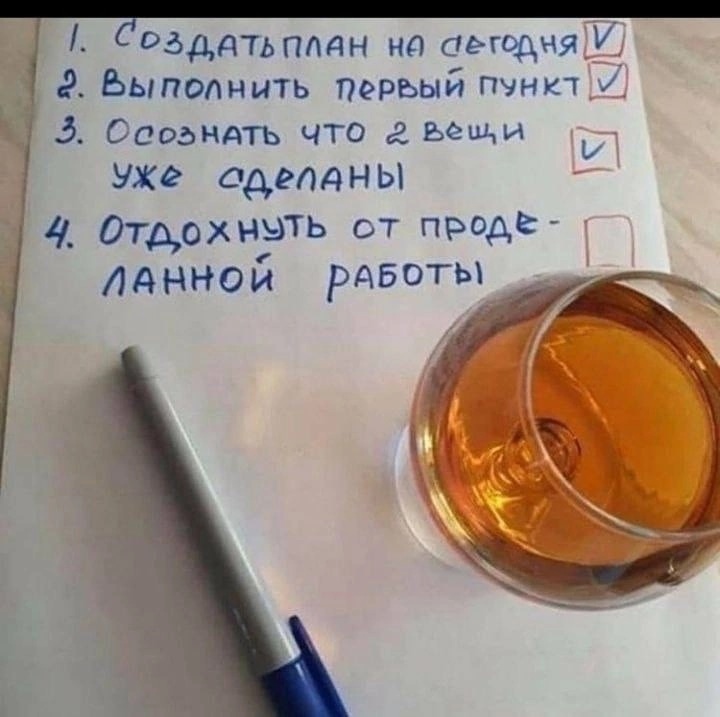 1. Создать план на сегодня
2. Выполнить первый пункт
3. Осознать что 2 вещи
уже сделаны
4. Отдохнуть от проде-
ланной работы